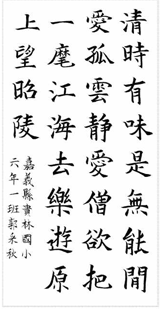 清時有味是無能閒
愛孤雲靜愛僧欲把
一麾江海去樂遊原
上望昭陵
嘉義縣貴林國小
六年一班郭采秋